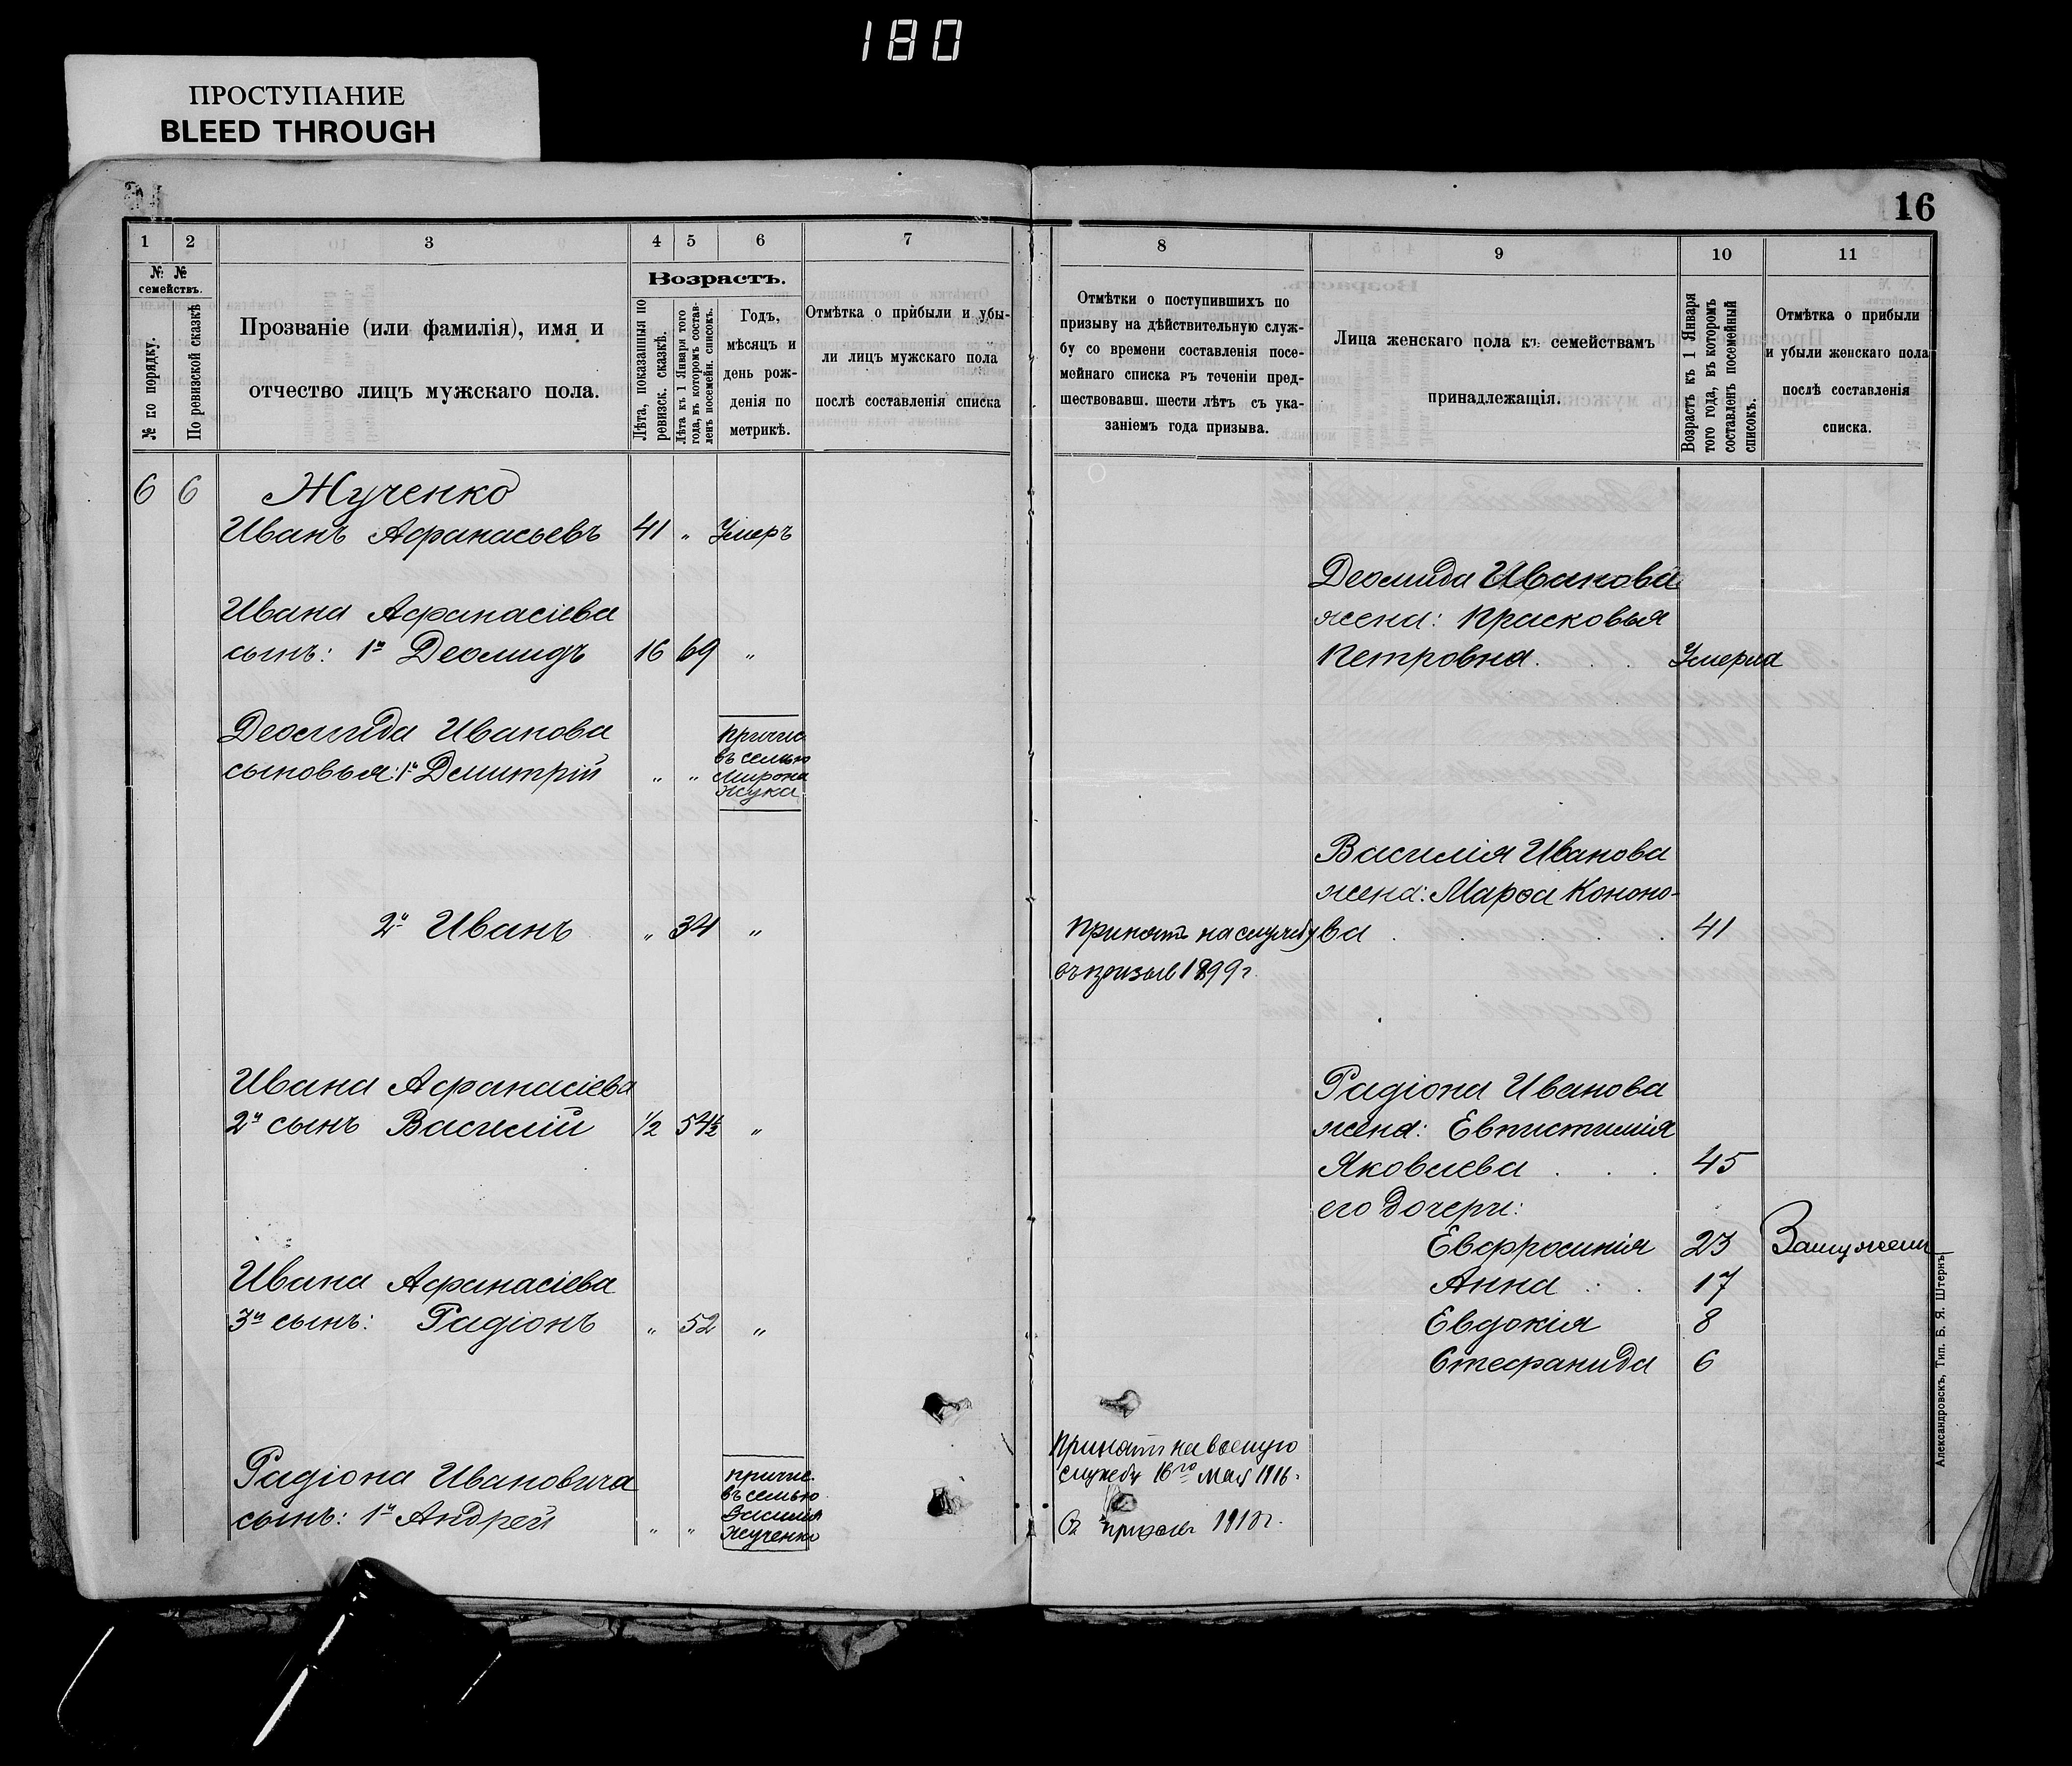 180
ПРОСТУПАНИЕ
BLEED THROUGH
16
1 2 3 4 5 6 7 8 9 10 11
№ № семействъ.
№ по порядку.
По ревизской сказкѣ
Прозваніе (или фамилія), имя и
отчество лицъ мужскаго пола.
Возрастъ.
Лѣта, показанныя по
ревизск. сказкѣ.
Лѣта къ 1 Января того
года, въ которомъ состав-
ленъ посемейн. списокъ.
Годъ,
мѣсяцъ и
день рож-
денія по
метрикѣ.
Отмѣтка о прибыли и убы-
ли лицъ мужскаго пола
послѣ составленія списка
Отмѣтки о поступившихъ по
призыву на дѣйствительную служ-
бу со времени составленія посе-
мейнаго списка въ теченіи пред-
шествовавш. шести лѣтъ съ ука-
заніемъ года призыва.
Лица женскаго пола къ семействамъ
принадлежащія.
Возрастъ къ 1 Января
того года, въ которомъ
составленъ посемейный
списокъ.
Отмѣтка о прибыли
и убыли женскаго пола
послѣ составленія
списка.
6 6 Жученко
Иванъ Афанасьевъ 41 „ Умеръ
Ивана Афанасіева
сынъ: 1й Деомидъ 16 69 „
Деомида Иванова
сыновья: 1й Дмитрій „ „
причис.
въ семью
Мирона
Жука
2й Иванъ „ 34 „
Ивана Афанасіева
2й сынъ Василій ½ 54½ „
Ивана Афанасіева
3й сынъ: Радіонъ „ 52 „
Радіона Ивановича
сынъ: 1й Андрей „ „
причис.
въ семью
Василія
Жученко
Принятъ на службу
въ призывъ 1899 г.
Принятъ на военную
службу 16го Мая 1916.
Въ призывъ г.
Деомида Иванова
жена: Прасковья
Петровна . . . Умерла
Василія Иванова
жена: Марѳа Кононо-
ва . . . . . 41
Радіона Иванова
жена: Евпистимія
Яковлева . . . 45
его дочери:
Евфросинія 23 Замужем
Анна . . 17
Евдокія 8
Стефанида 6
Александровскъ, Тип. Б. Я. Штернъ